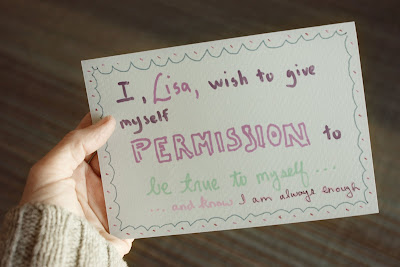 I, Lisa, wish to give
myself
PERMISSION to
be true to myself ....
... and know I am always enough